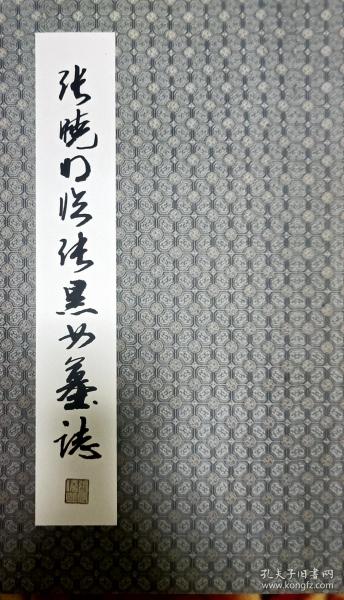 张晓明临张黑女墓志
孔夫子旧书网
www.kongfz.com